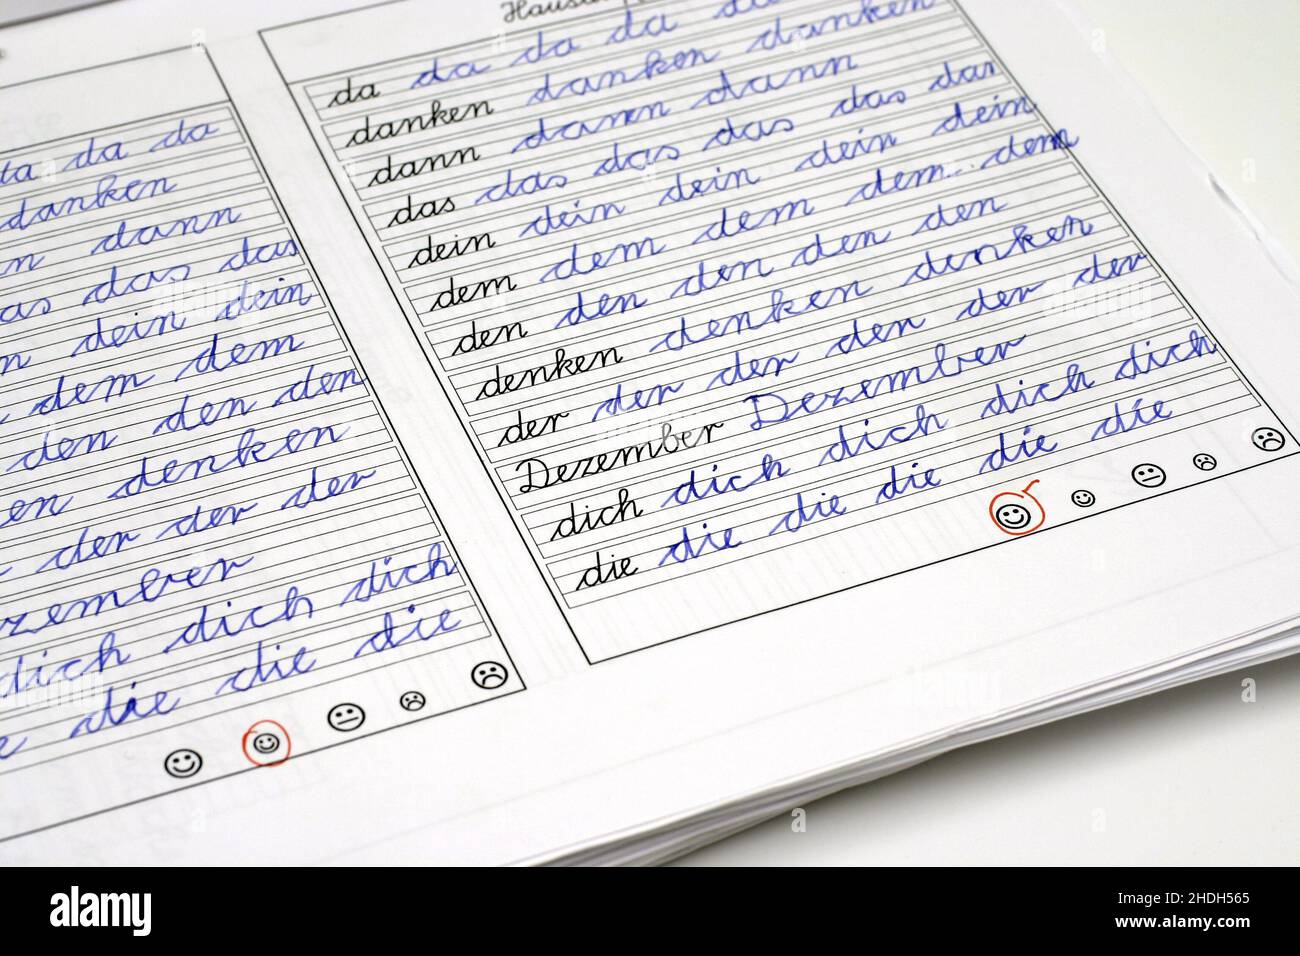 da da da
danken
dann
das das
dein dein
dem dem
den den den
denken
der der der
dich dich dich
die die die
da da da da
danken danken danken
dann dann dann
das das das das das
dein dein dein dein dein
dem dem dem dem dem
den den den den den
denken denken denken denken
der der der den der der
Dezember Dezember Dezember
dich dich dich dich dich dich
die die die die die die
alamy
Image ID: 2HDH565
www.alamy.com